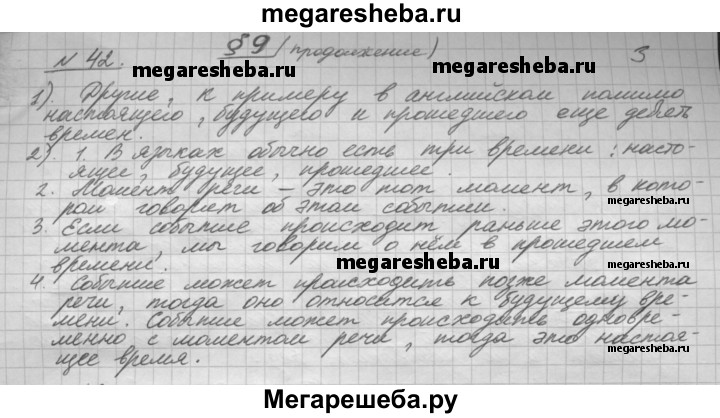 megaresheba.ru
§9 (продолжение) 3
N 42. megaresheba.ru megaresheba.ru
1). Другие, к примеру в английском помимо
настоящего, будущего и прошедшего еще девять
времен.
2). 1. В языках обычно есть три времени: насто-
ящее, будущее, прошедшее.
2. Момент речи – это тот момент, в кото-
ром говорят об этом событии. megaresheba.ru
3. Если событие происходит раньше этого мо-
мента, мы говорим о нём в прошедшем
времени. megaresheba.ru
4. Событие может происходить позже момента
речи, тогда оно относится к будущему вре-
мени. Событие может происходить одновре-
менно с моментом речи, тогда это настоя-
щее время. megaresheba.ru
Мегарешеба.ру